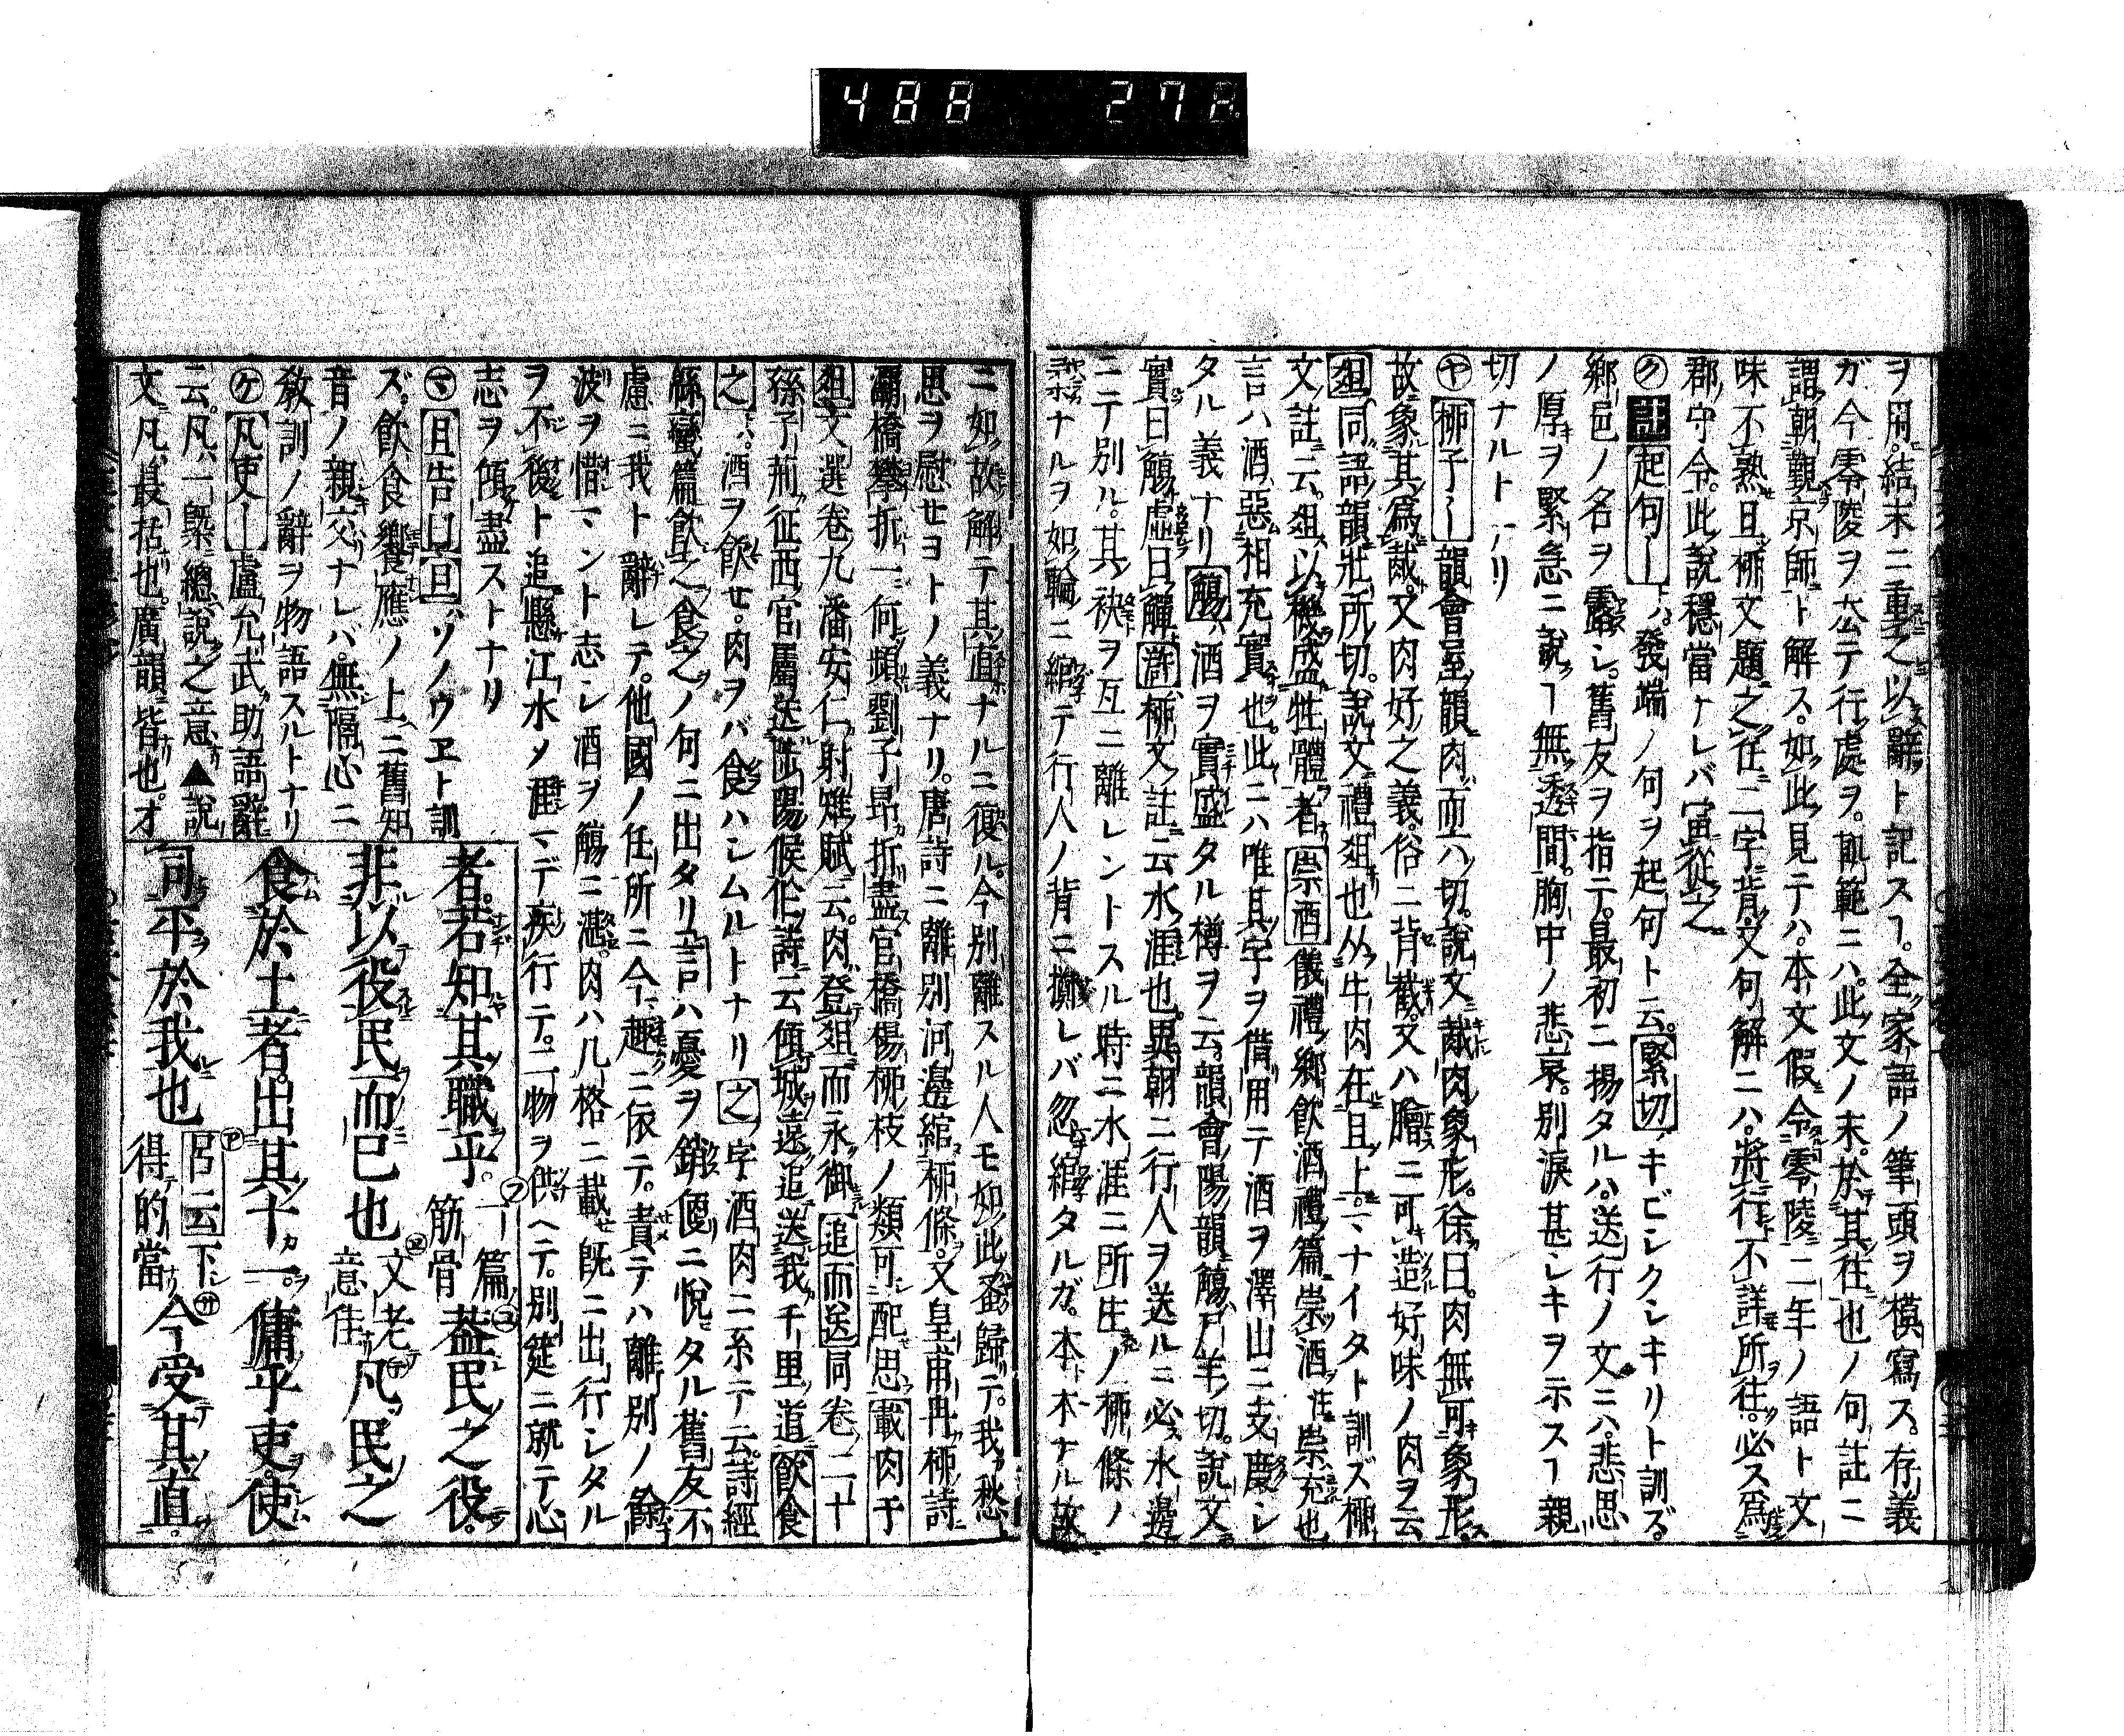 488 27
ヲ用。結末ニ重之以辭ト記スヿ。全家語ノ筆頭ヲ模寫ス。存義
ガ今零陵ヲ去テ行處ヲ。軌範ニハ。此文ノ末。於其往也ノ句註ニ
謂朝覲京師ト解ス。如此見テハ。本文假令零陵二年ノ語ト文
味不熟且柳文題之任二字背。文句解ニハ。將行不詳所往。必ス爲
郡守令。此說穩當ナレバ寅從之
ク 註 起句ー ハ。發端ノ句ヲ起句ト云。緊切 キビシクシキリト訓ズ。
鄉邑ノ名ヲ露シ。舊友ヲ指テ。最初ニ揚タルハ。送行ノ文ニハ。悲思
ノ厚ヲ緊急ニ說ヿ無透間。胸中ノ悲哀。別淚甚シキヲ示スヿ親
切ナルトナリ
ヤ 柳子ー 韻會屋韻肉而六切。說文胾肉象形。徐曰。肉無可象形。
故象其爲胾。又肉好之義。俗ニ背截。又ハ膾ニ可造好味ノ肉ヲ云
俎 同語韻壯所切。說文禮俎也从半肉在且上。マナイタト訓ズ柳
文註云。俎以機盛牲體者 崇酒 儀禮鄉飲酒禮篇崇酒註崇充也
言ハ酒惡相充實也。此ニハ唯其字ヲ借用テ酒ヲ澤山ニ支慶シ
タル義ナリ 觴 ハ酒ヲ實盛タル樽ヲ云。韻會陽韻觴尸羊切。說文
實曰觴虛曰觶 滸 柳文註云水涯也。異朝ニ行人ヲ送ルニ必水邊
ニテ別ル。其袂ヲ互ニ離レントスル時ニ水涯ニ所生ノ柳條ノ
柔ナルヲ如輪ニ綰テ行人ノ背ニ擲レバ忽綰タルガ。本木ナル故
ニ如故解テ其直ナルニ復ル。今別離スル人モ如此蚤歸テ。我愁
思ヲ慰セヨトノ義ナリ。唐詩ニ離別河邊綰柳條。又皇甫冉柳詩
灞橋攀折一何頻劉子昂折盡官橋楊柳枝ノ類可配思 載肉于
俎 文選卷九潘安仁射雉賦云。肉登俎而永御 追而送 同卷二十
孫子荊征西官屬送出陽候作詩云傾城遠追送我千里道 飲食
之 ハ。酒ヲ飮セ。肉ヲバ食ハシムルトナリ 之 字酒肉ニ系テ云。詩經
緜蠻篇飮之食之ノ句ニ出タリ 言ハ憂ヲ銷優ニ悅タル舊友不
慮ニ我ト辭シテ。他國ノ任所ニ今趣ニ依テ。責テハ離別ノ餘
波ヲ惜マント志シ酒ヲ觴ニ滿。肉ハ几格ニ載既ニ出行シタル
ヲ不後ト追懸江水ノ涯マデ疾行テ。二物ヲ供ヘテ。別筵ニ就テ心
志ヲ傾盡ストナリ
マ 且告曰 且 ハソノウヱト訓
ズ。飮食饗應ノ上ニ舊知
音ノ親交ナレバ。無隔心ニ
敎訓ノ辭ヲ物語スルトナリ
ケ 凡吏ー 盧允武助語辭
云。凡一槩總說之意▲說
文凡最括也。廣韻皆也。オ
者。若知其職乎。一篇筋骨 葢民之役。
非以役民而已也 文老意佳 凡民之
食於土者。出其十一。傭乎吏。使
司平於我也 呂云下得的當 今受其直。